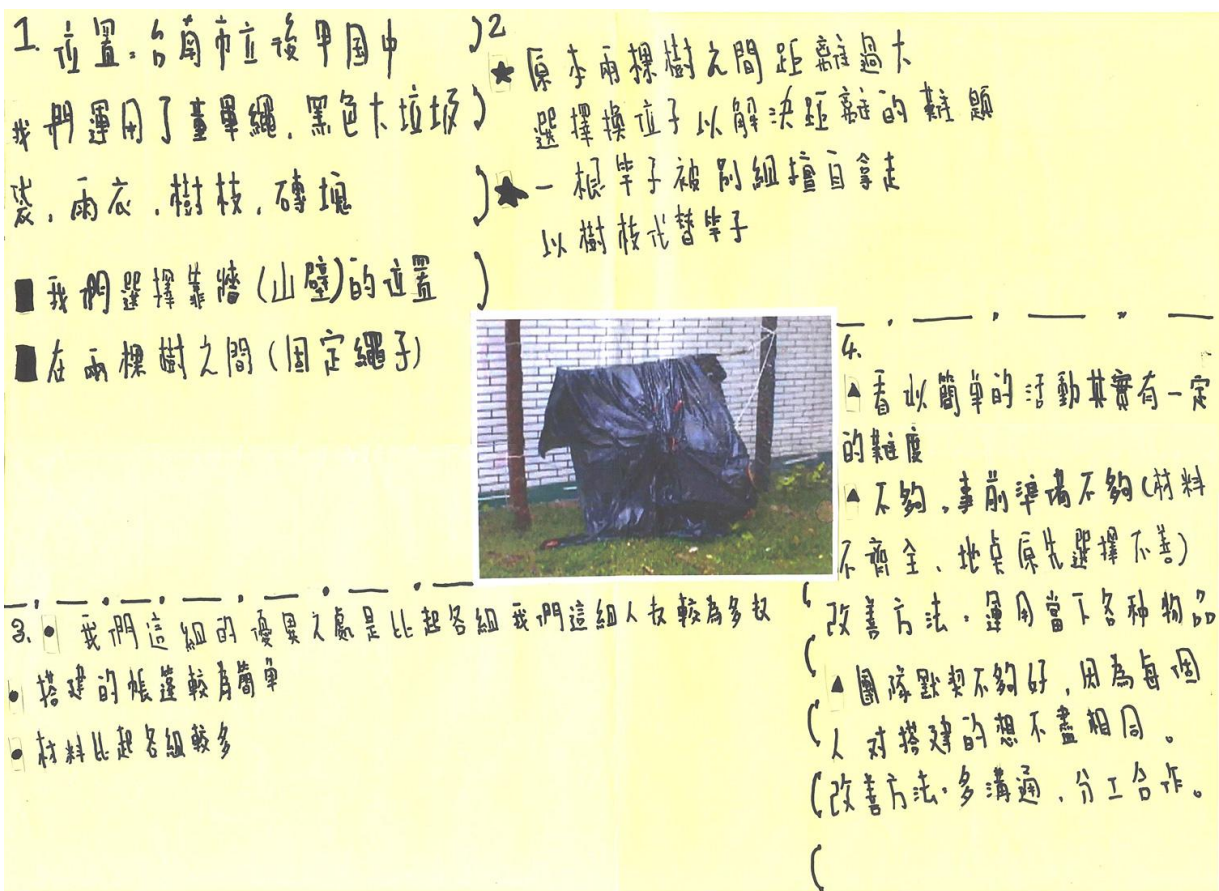 1. 位置：台南市立後甲国中
我們運用了童軍繩、黑色大垃圾
袋、雨衣、樹枝、磚塊
■我們選擇靠牆(山壁)的位置
■在兩棵樹之間(固定繩子)
2
★原本兩棵樹之間距離過大
選擇換位子以解決距離的難題
★一根竿子被別組擅自拿走
以樹枝代替竿子
3. •我們這組的優異之處是比起各組我們這組人友較為多奴
•搭建的帳篷較為簡單
•材料比起各組較多
4.
▲看似簡單的活動其實有一定
的難度
▲不夠，事前準備不夠(材料
不齊全、地點原先選擇不善)
改善方法：運用當下各种物品
▲團隊默契不夠好，因為每個
人对搭建的想不盡相同。
改善方法：多溝通，分工合作。